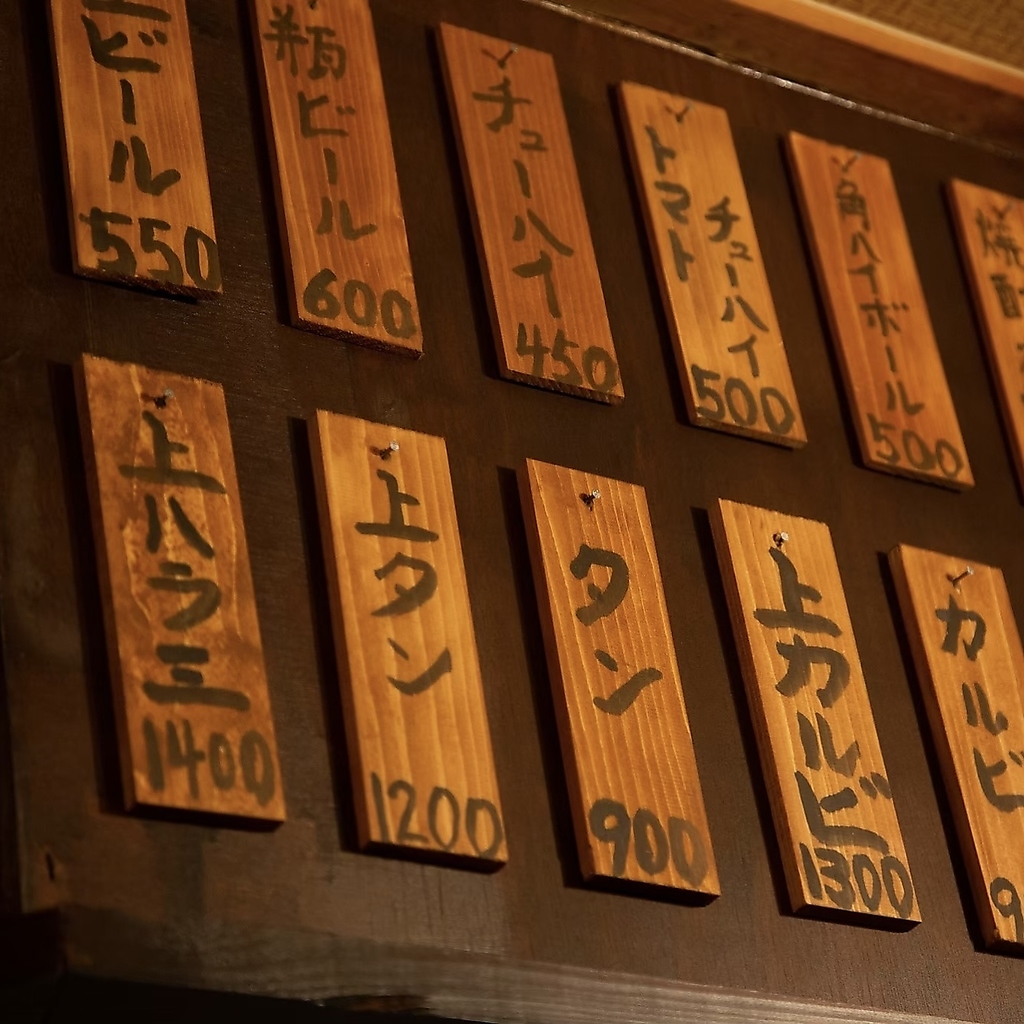 ビール
550
瓶ビール
600
チューハイ
450
トマト
チューハイ
500
角ハイボール
500
焼酎
上ハラミ
1400
上タン
1200
タン
900
上カルビ
1300
カルビ
9